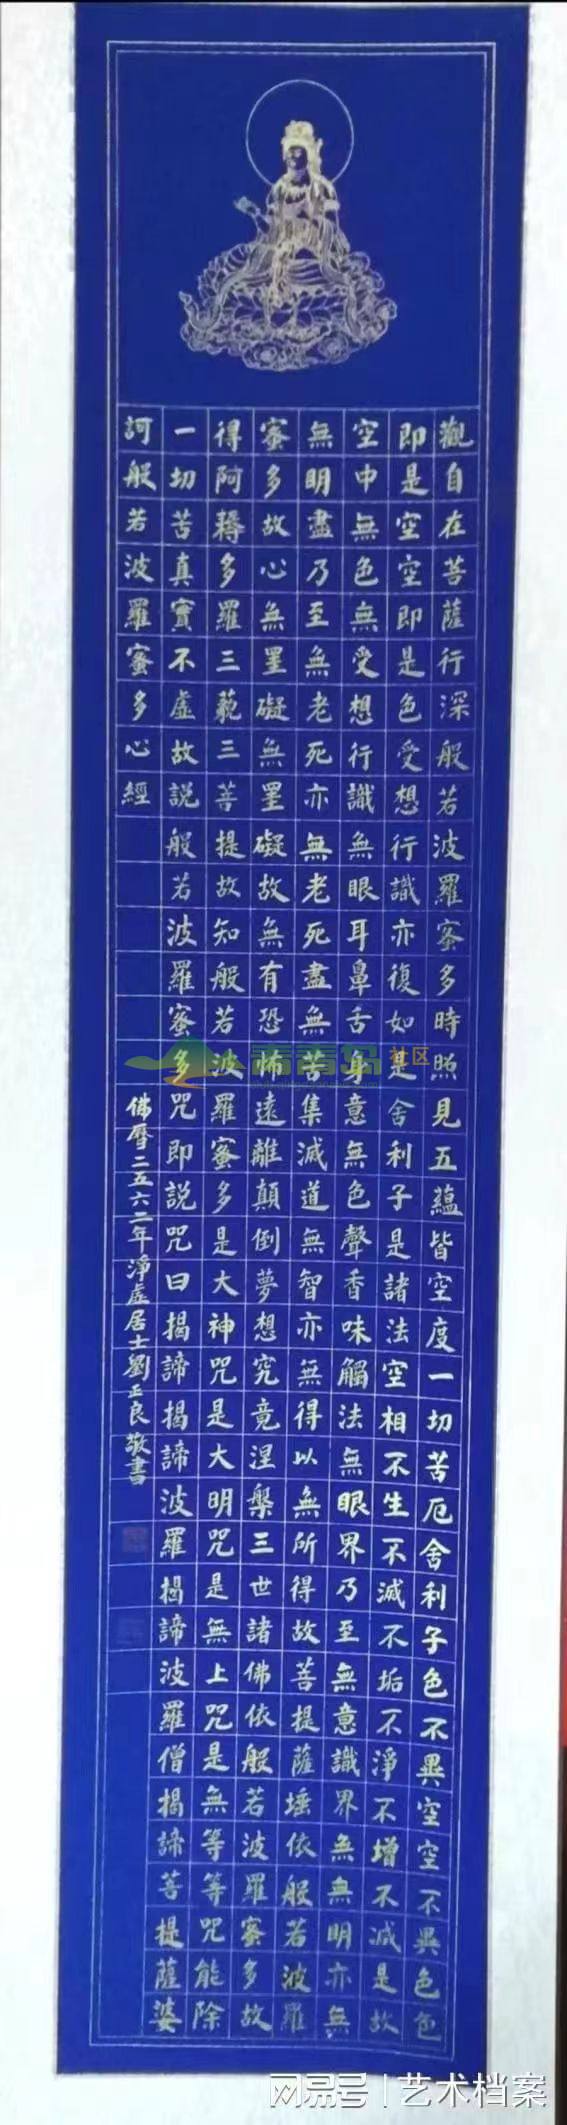 觀自在菩薩行深般若波羅蜜多時照見五蘊皆空度一切苦厄舍利子色不異空空不異色色
即是空空即是色受想行識亦復如是舍利子是諸法空相不生不滅不垢不淨不增不減是故
空中無色無受想行識無眼耳鼻舌身意無色聲香味觸法無眼界乃至無意識界無無明亦無
無明盡乃至無老死亦無老死盡無苦集滅道無智亦無得以無所得故菩提薩埵依般若波羅
蜜多故心無罣礙無罣礙故無有恐怖遠離顛倒夢想究竟涅槃三世諸佛依般若波羅蜜多故
得阿耨多羅三藐三菩提故知般若波羅蜜多是大神咒是大明咒是無上咒是無等等咒能除
一切苦真實不虛故說般若波羅蜜多咒即說咒曰揭諦揭諦波羅揭諦波羅僧揭諦菩提薩婆
訶般若波羅蜜多心經
佛曆二五六二年淨虛居士劉正良敬書
青青岛社区
网易号 | 艺术档案